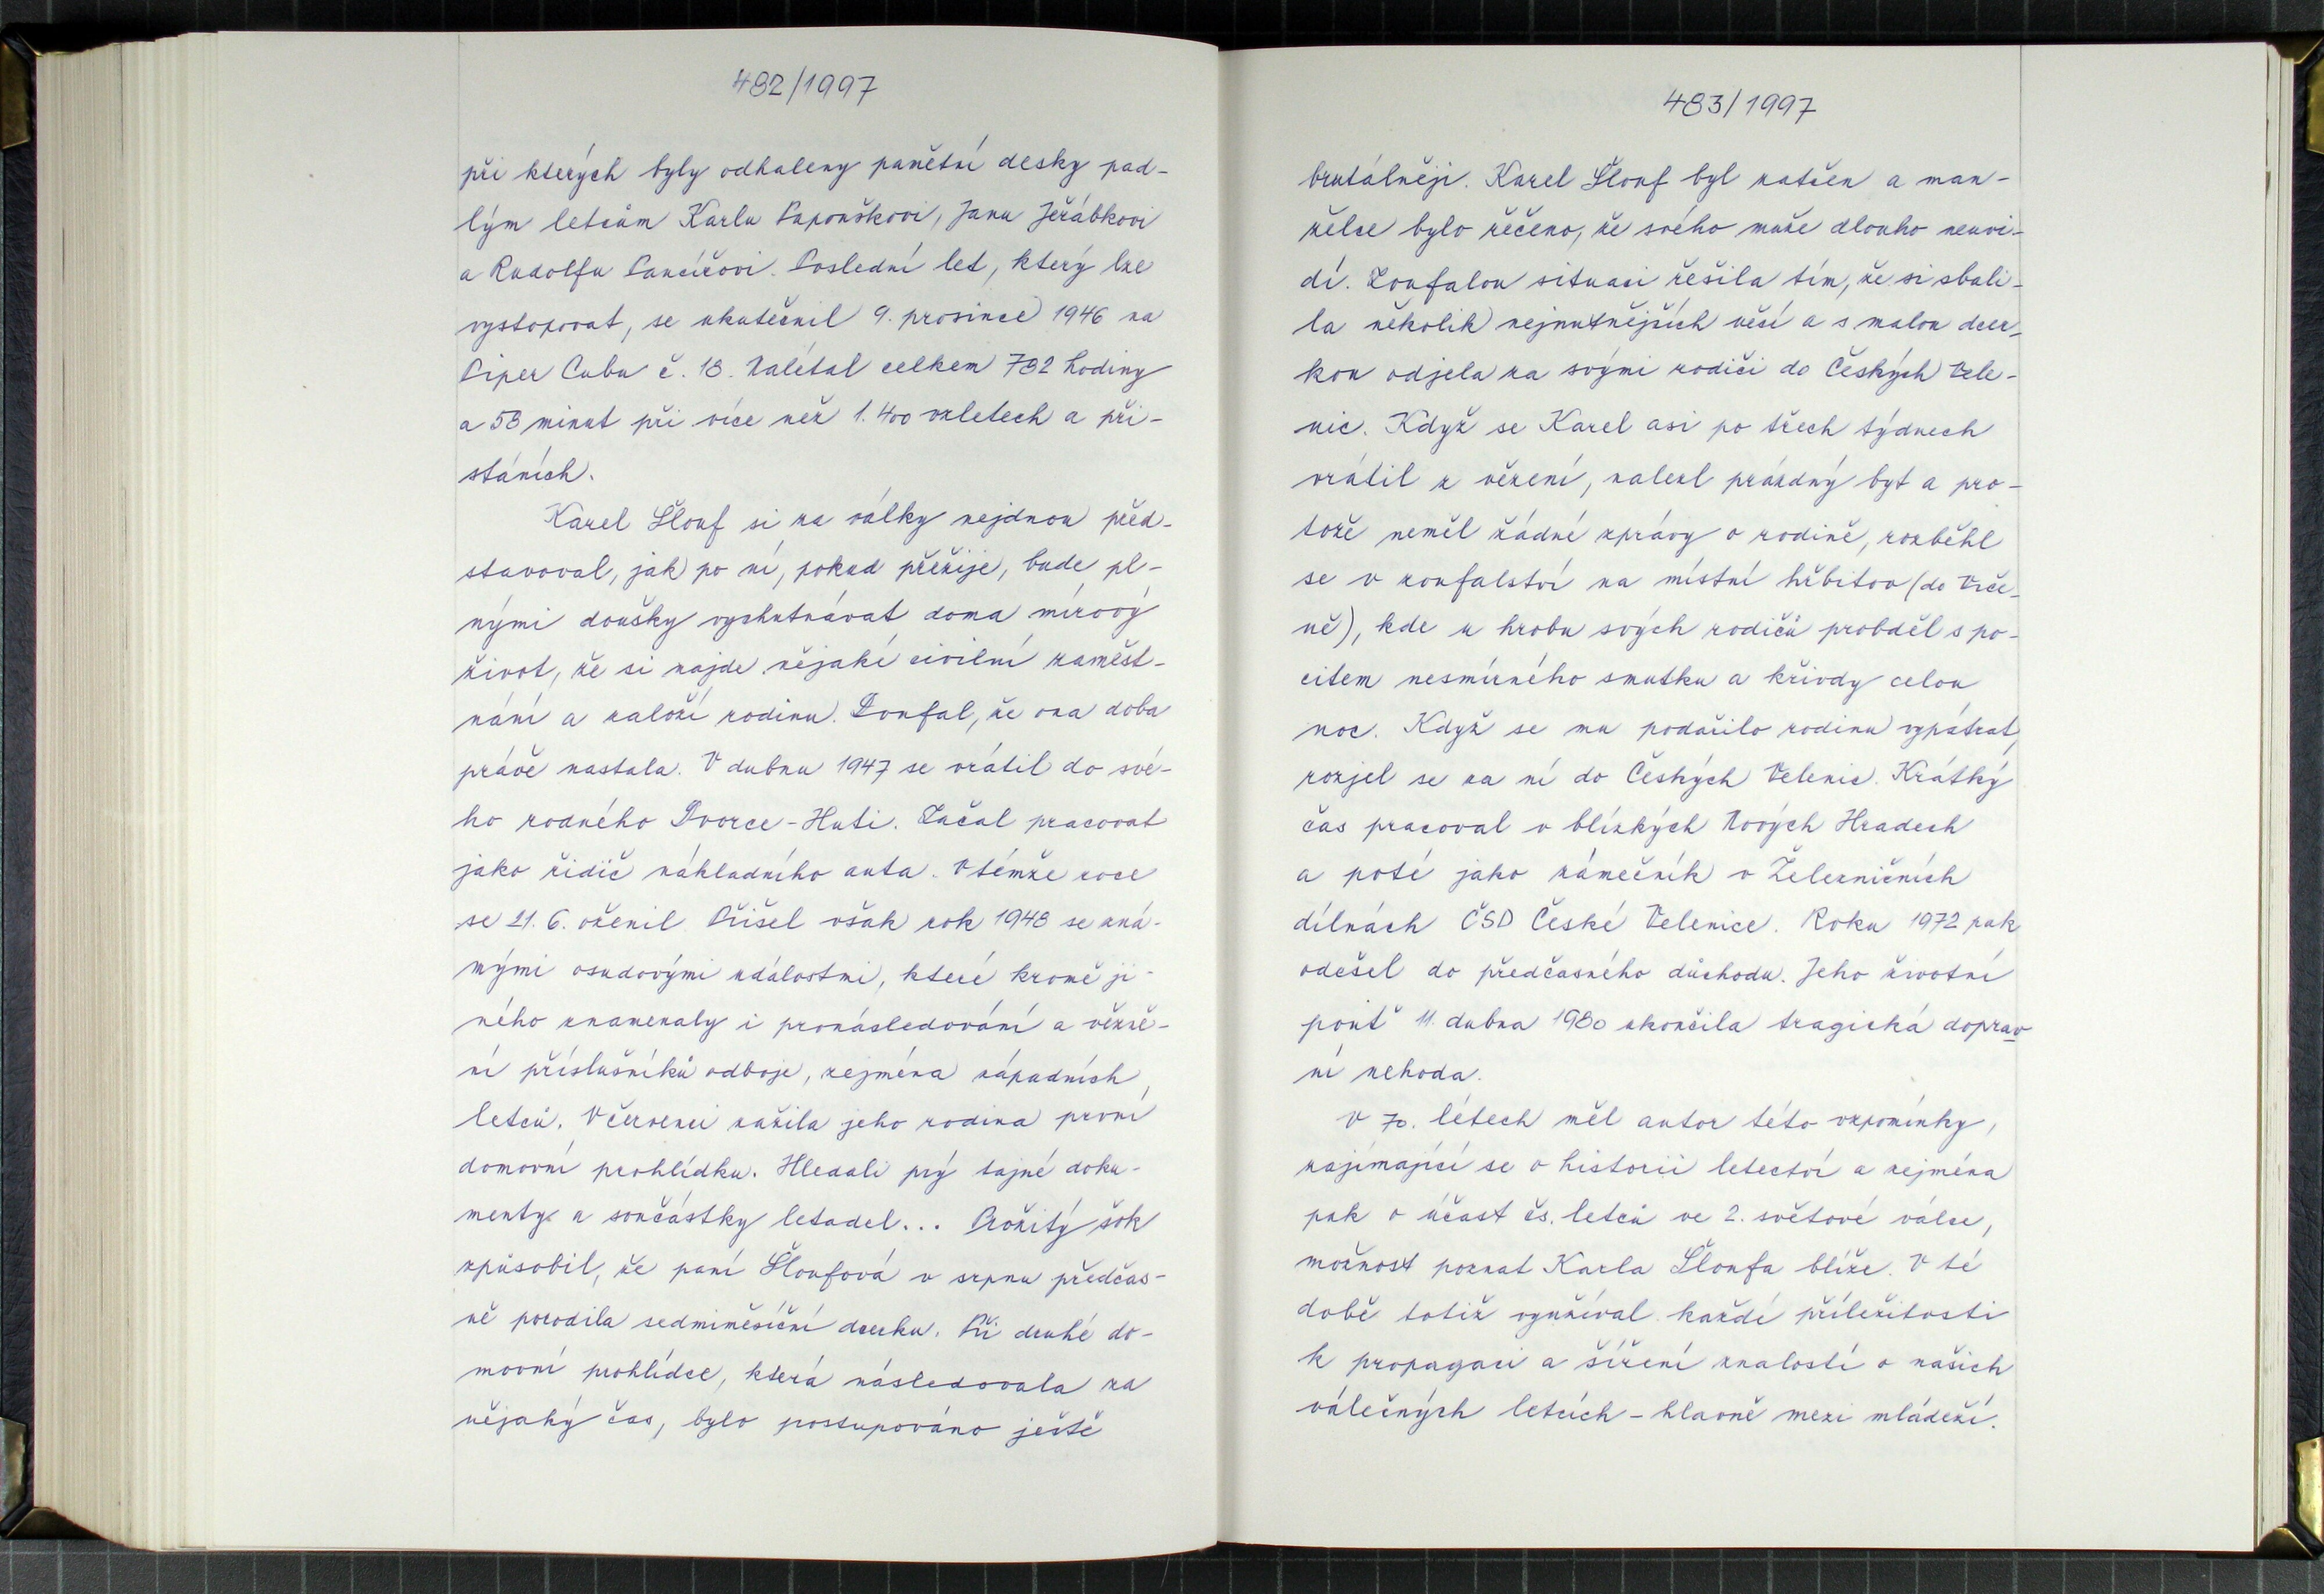 482/1997
při kterých byly odhaleny pamětní desky pad-
lým letcům Karlu Papouškovi, Janu Jeřábkovi
a Rudolfu Pancířovi. Poslední let, který lze
vystopovat, se uskutečnil 9. prosince 1946 na
Piper Cubu č. 18. Nalétal celkem 782 hodiny
a 58 minut při více než 1.400 vzletech a při-
stáních.
Karel Šlouf si za války nejdnou před-
stavoval, jak po ní, pokud přežije, bude pl-
nými doušky vychutnávat doma mírový
život, že si najde nějaké civilní zaměst-
nání a založí rodinu. Doufal, že ona doba
právě nastala. V dubnu 1947 se vrátil do své-
ho rodného Dvorce-Huti. Začal pracovat
jako řidič nákladního auta. V témže roce
se 21. 6. oženil. Přišel však rok 1948 se zná-
mými osudovými událostmi, které kromě ji-
ného znamenaly i pronásledování a vězně-
ní příslušníků odboje, zejména západních
letců. V červenci zažila jeho rodina první
domovní prohlídku. Hledali prý tajné doku-
menty a součástky letadel... Prožitý šok
způsobil, že paní Šloufová v srpnu předčas-
ně porodila sedmiměsíční dcerku. Při druhé do-
movní prohlídce, která následovala za
nějaký čas, bylo postupováno ještě
483/1997
brutálněji. Karel Šlouf byl zatčen a man-
želce bylo řečeno, že svého muže dlouho neuvi-
dí. Zoufalou situaci řešila tím, že si sbali-
la několik nejnutnějších věcí a s malou dcer-
kou odjela za svými rodiči do Českých Vele-
nic. Když se Karel asi po třech týdnech
vrátil z vězení, nalezl prázdný byt a pro-
tože neměl žádné zprávy o rodině, rozběhl
se v zoufalství na místní hřbitov (do Vrče-
ně), kde u hrobu svých rodičů probděl s po-
citem nesmírného smutku a křivdy celou
noc. Když se mu podařilo rodinu vypátrat,
rozjel se za ní do Českých Velenic. Krátký
čas pracoval v blízkých Nových Hradech
a poté jako zámečník v Železničních
dílnách ČSD České Velenice. Roku 1972 pak
odešel do předčasného důchodu. Jeho životní
pouť 11. dubna 1980 ukončila tragická doprav
ní nehoda.
V 70. létech měl autor této vzpomínky,
zajímající se o historii letectví a zejména
pak o účast čs. letců ve 2. světové válce,
možnost poznat Karla Šloufa blíže. V té
době totiž využíval každé příležitosti
k propagaci a šíření znalostí o našich
válečných letcích - hlavně mezi mládeží.